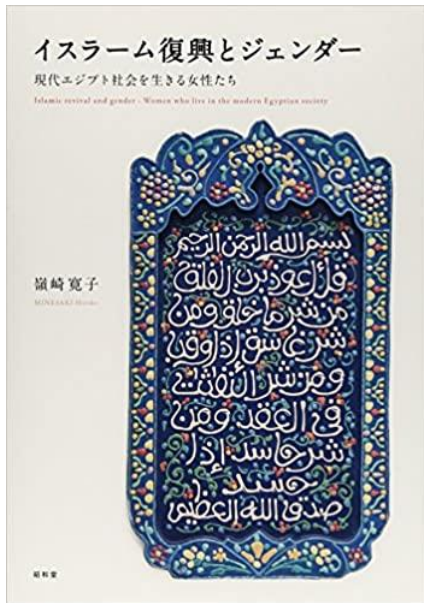 イスラーム復興とジェンダー
現代エジプト社会を生きる女性たち
Islamic revival and gender - Women who live in the modern Egyptian society
嶺崎寛子
MINESAKI Hiroko
بسم الله الرحمن الرحيم
قل أعوذ برب الفلق
من شر ما خلق ومن
شر غاسق إذا وقب
ومن شر النفثت
في العقد ومن
شر حاسد إذا
حسد
صدق الله العظيم
昭和堂